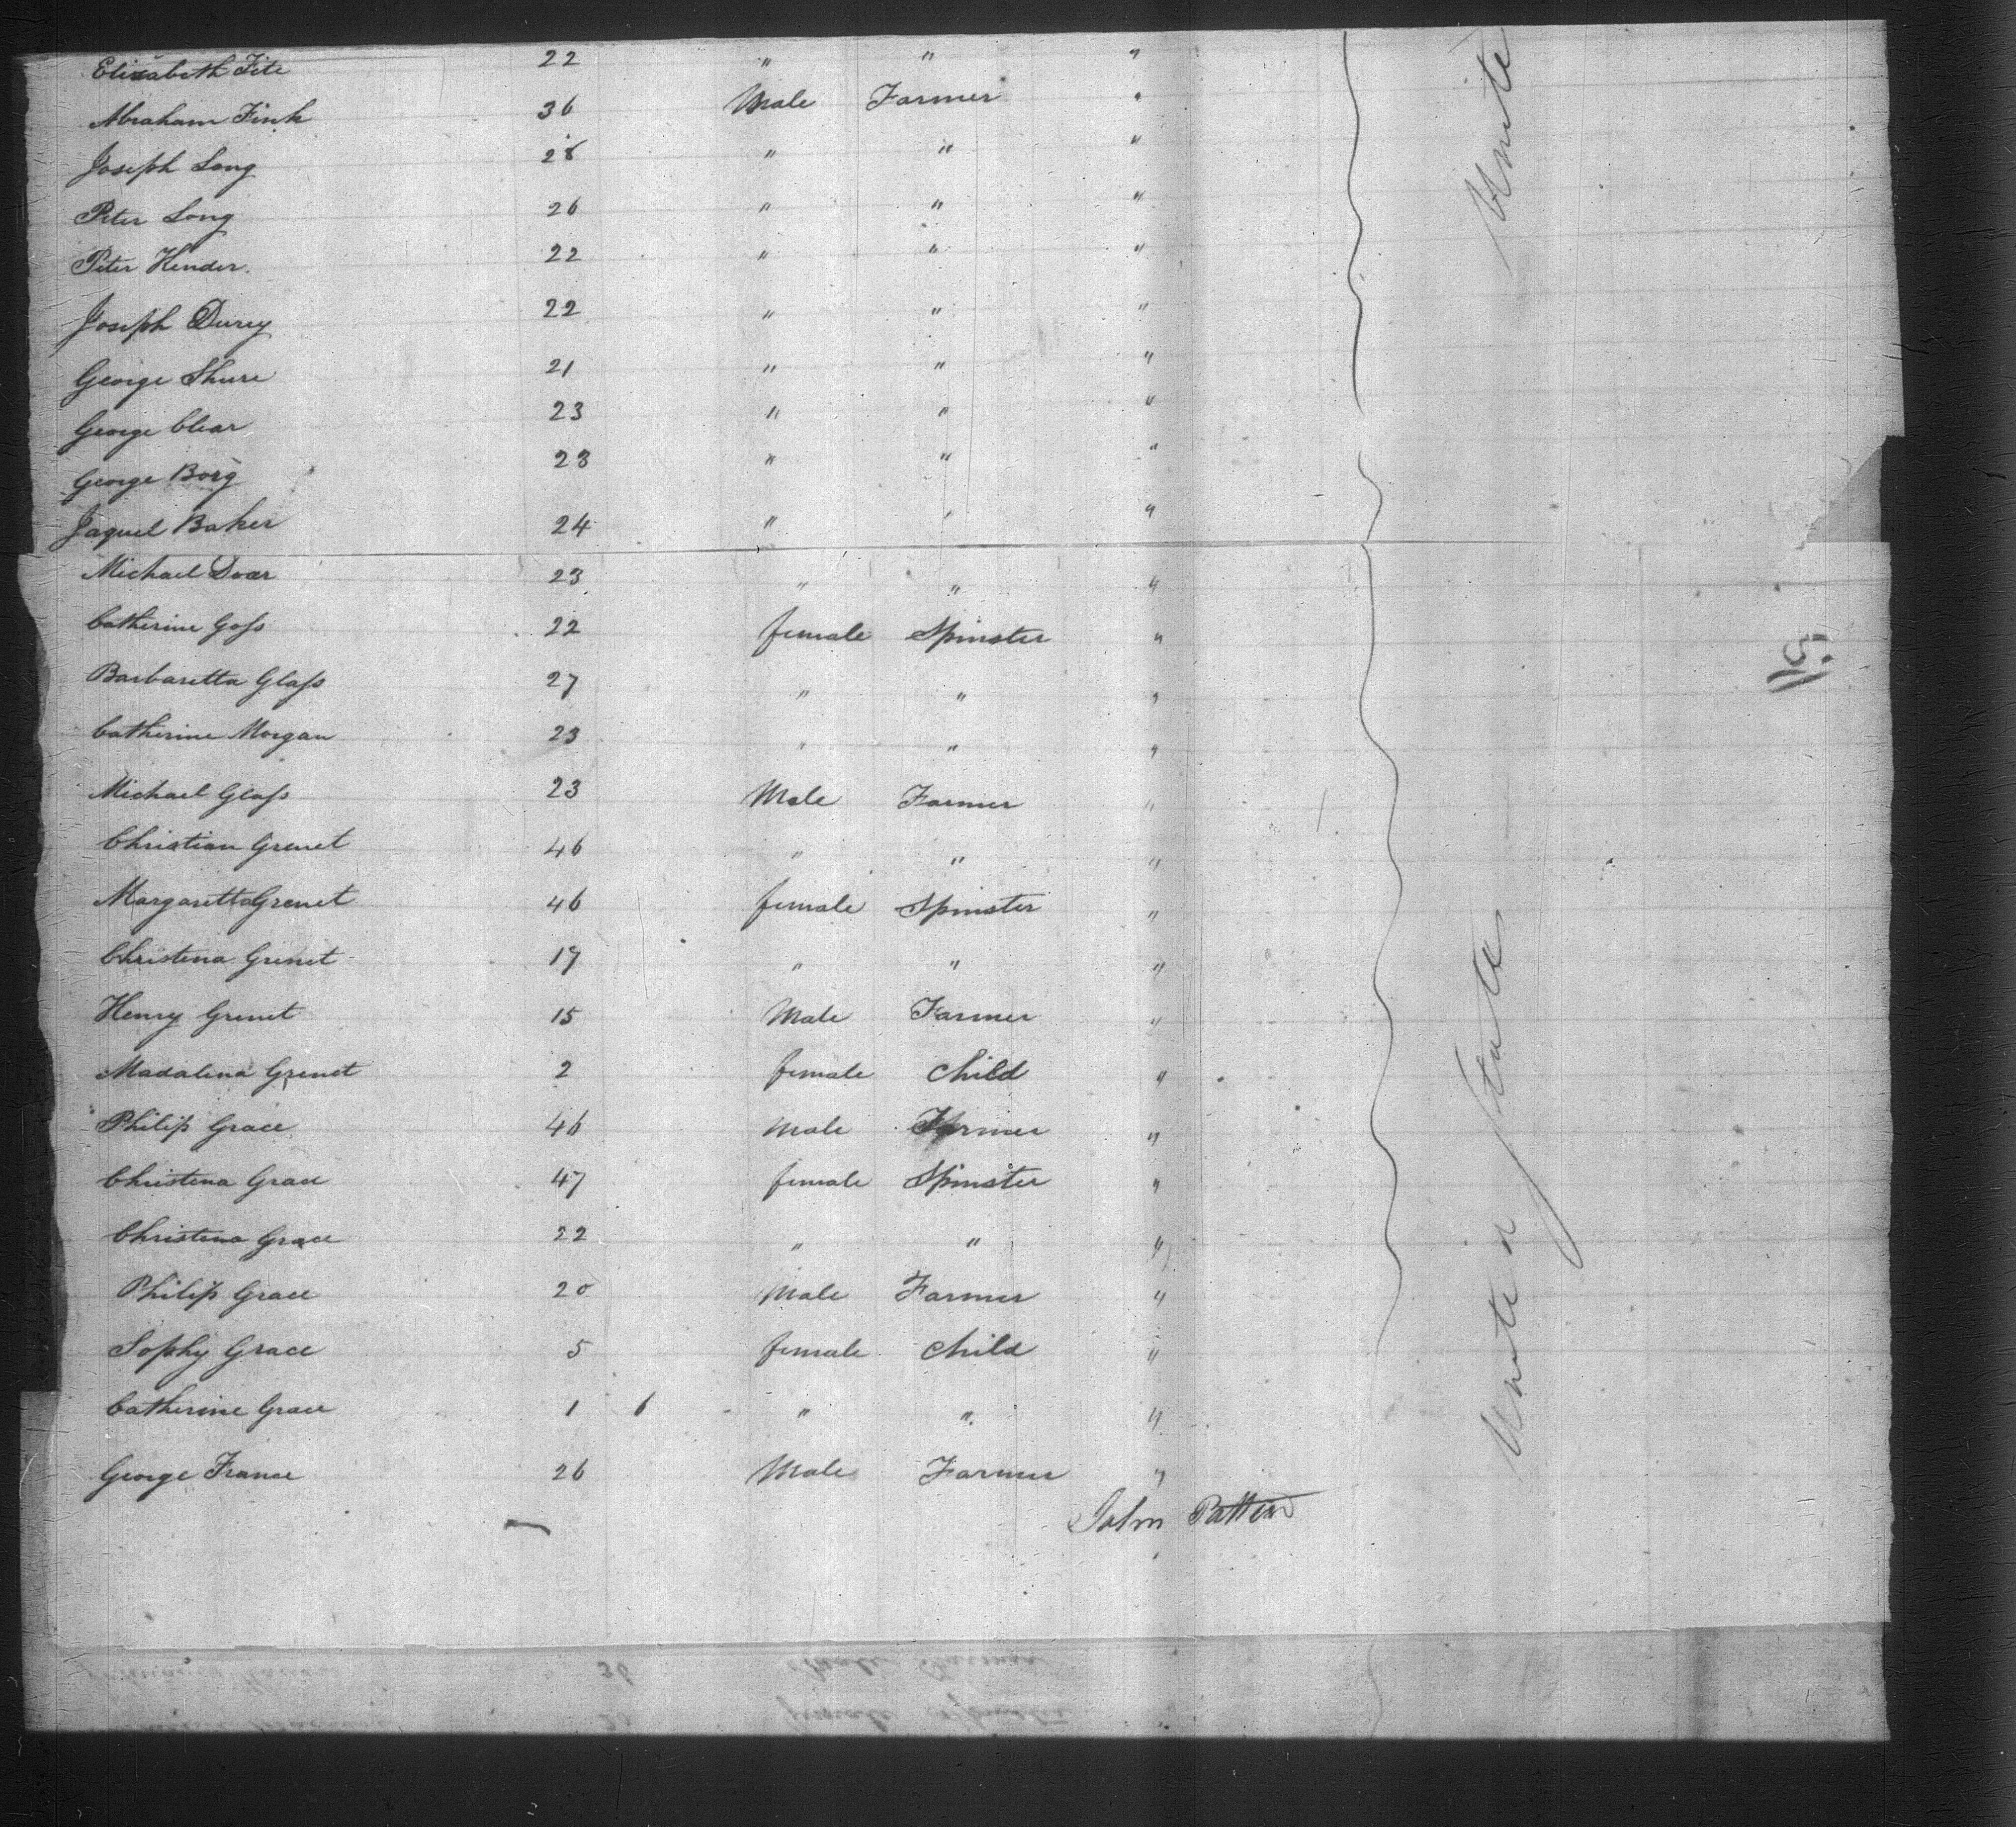 Elizabeth Fite 22 " " "
Abraham Fink 36 Male Farmer "
Joseph Long 28 " " "
Peter Long 26 " " "
Peter Hender. 22 " " "
Joseph Durey 22 " " "
George Shure 21 " " "
George Clear 23 " " "
George Borg 23 " " "
Jaquel Baker 24 " " "
Michael Doer 23 " " "
Catherine Goss 22 female Spinster "
Barbaretta Glass 27 " " "
Catherine Morgan 23 " " "
Michael Glass 23 Male Farmer "
Christian Grenet 46 " " "
Margaretta Grenet 46 female Spinster "
Christena Grenet 17 " " "
Henry Grenet 15 Male Farmer "
Madalena Grenet 2 female Child "
Philip Grace 46 Male Farmer "
Christena Grace 47 female Spinster "
Christena Grace 22 " " "
Philip Grace 20 Male Farmer "
Sophy Grace 5 female Child "
Catherine Grace 1 6 " " "
George France 26 Male Farmer "
John Patten
United States
Unite